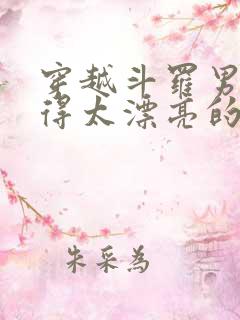 穿越斗罗男
得太漂亮的
朱采为